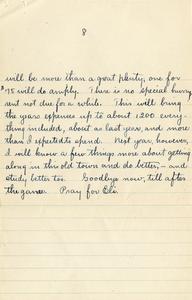 8
will be more than a great plenty, one for
$75 will do amply. There is no special hurry,
rent not due for a while. This will bring
the years expenses up to about 1200 every-
thing included, about as last year, and more
than I expected to spend. Next year, however,
I will know a few things more about getting
along in this old town and do better, – and
study better too. Goodbye now, till after
the game. Pray for Eli.